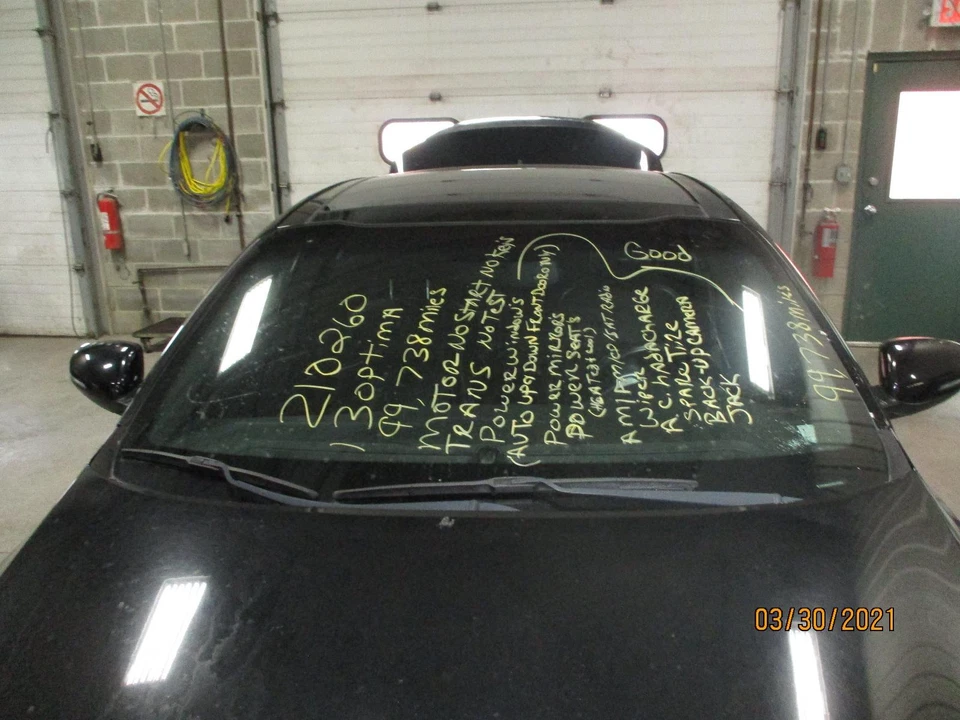 210260
13 OPTIMA
99,738 miles
MOTOR NO START NO KEYS
TRANS NO TEST
POWER WINDOWS
(AUTO UP & DOWN FRONT DOOR ONLY)
POWER MIRROR'S
POWER SEAT'S
(HEATED TOO!)
AM/FM/CD/SAT/
WIPER
A.C. HAD A CHARGE
SPARE TIRE
BACK-UP CAMERA
JACK
Good
99,738 miles
03/30/2021